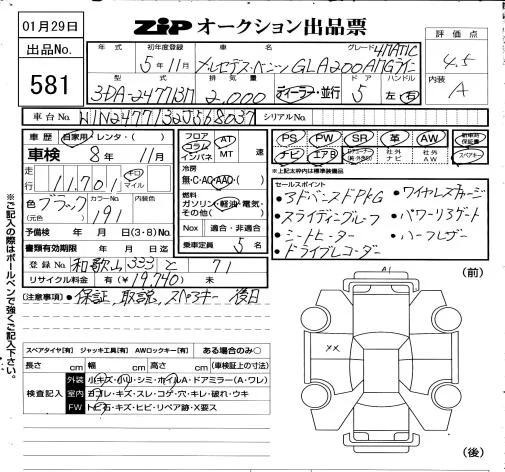 01月29日
ZIP オークション出品票
出品No.
581
年式 初年度登録 車名 グレード
5年11月 メルセデス・ベンツ GLA200d 4MATIC AMGライン
型式 排気量 ドア ハンドル
3DA-247713M 2,000 ディーラー・並行 5 左・右
評価点
4.5
内装
A
車台No. W1N2477132J568037 シリアルNo.
車歴 自家用・レンタ・( )
車検 8年 11月
走行 11,701 キロ マイル
色 ブラック カラーNo. 191 内装色
(元色)
予備検 年 月 日(3・8)No.
書類有効期限 年 月 日迄
登録No. 和歌山 333 と 71
リサイクル料金 有(¥19,740) 未
フロア コラム インパネ AT MT 速
冷房
無・C・AC・AAC・( )
燃料
ガソリン・軽油・電気・その他( )
Nox 適合・非適合
乗車定員 5名
PS PW SR 革 AW 新車時保証書
ナビ エアB 社外ナビ 社外AW スペアキー
*上記太枠内は標準装備品
セールスポイント
・アドバンスドPKG ・ワイヤレスチャージ
・スライディングルーフ ・パワーリヤゲート
・シートヒーター ・ハーフレザー
・ドライブレコーダー
(注意事項) ・保証、取説、スペアキー 後日
※ご記入の際はボールペンで強くご記入下さい。
スペアタイヤ[有] ジャッキ工具[有] AWロックキー[有] ある場合のみ○
長さ cm 幅 cm 高さ cm (車検証上の寸法)
検査記入 外装 小キズ・小凹・シミ・ホイルA・ドアミラー(A・ワレ)
室内 ヨゴレ・キズ・スレ・コゲ・穴・キレ・破れ・ウキ
FW トビ石・キズ・ヒビ・リペア跡・X要ス
(前)
A1
××
(後)